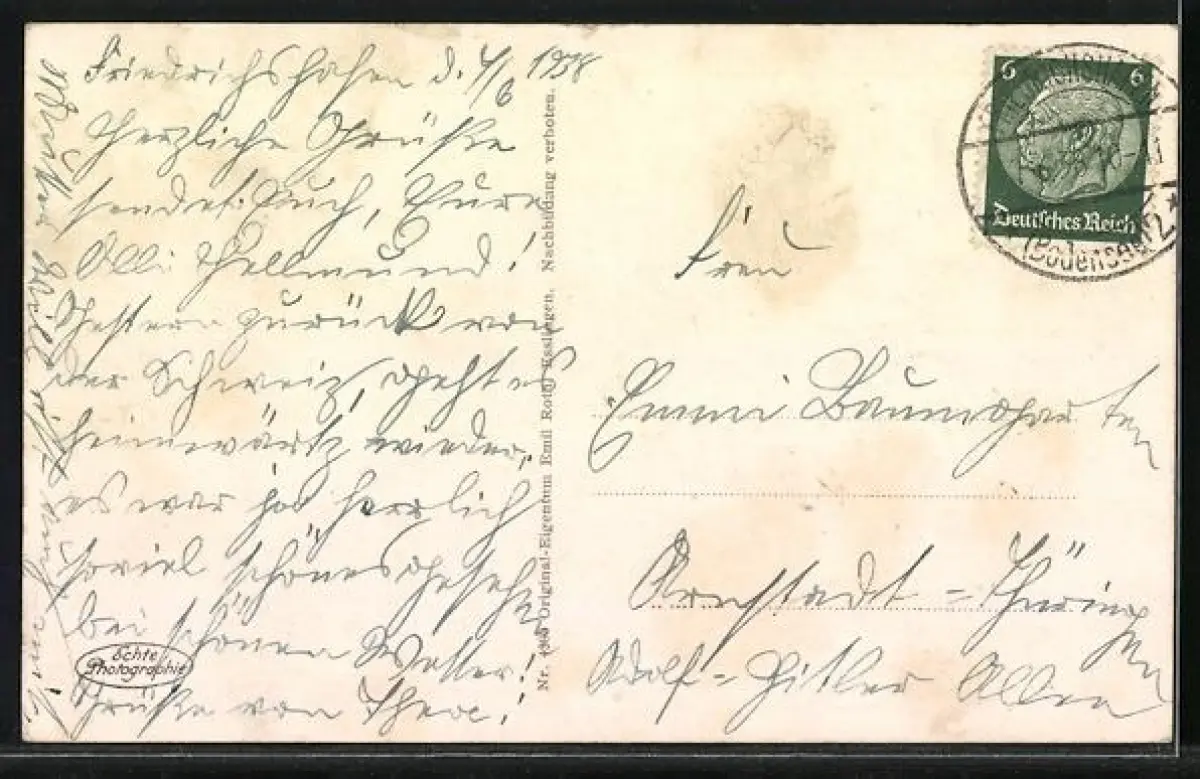 Friedrichshafen d. 4/6 1938
Herzliche Grüße
sendet Euch, Eure
Olli Hellmund!
Gestern zurück von
der Schweiz, geht es
heimwärts wieder,
es war ja herrlich
soviel schönes gesehn
bei schönen Wetter!
Grüße von
Echte
Photographie
Nr. Original-Eigentum Emil Roth, Esslingen. Nachbildung verboten.
6 6
Deutsches Reich
(Bodensee) 2 *
Frau
Emmi Baumgarten
Arnstadt = Thüringen
Adolf = Hitler Allee